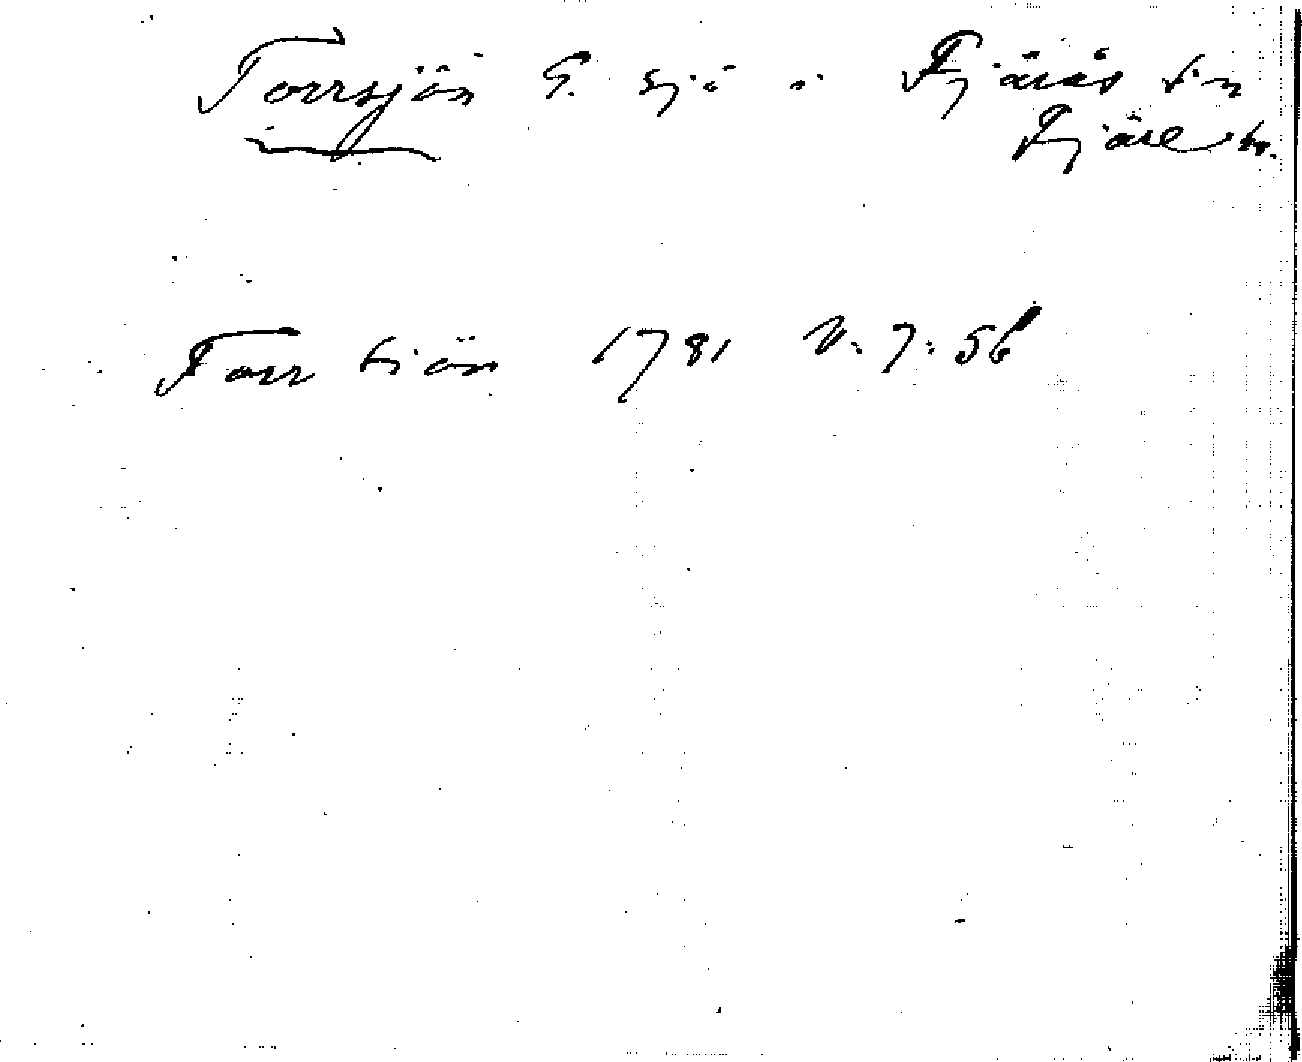 Torrsjön G. sjö i Fjärås sn
Fjäre hd.
Torr tiön 1781 V: 7: 56